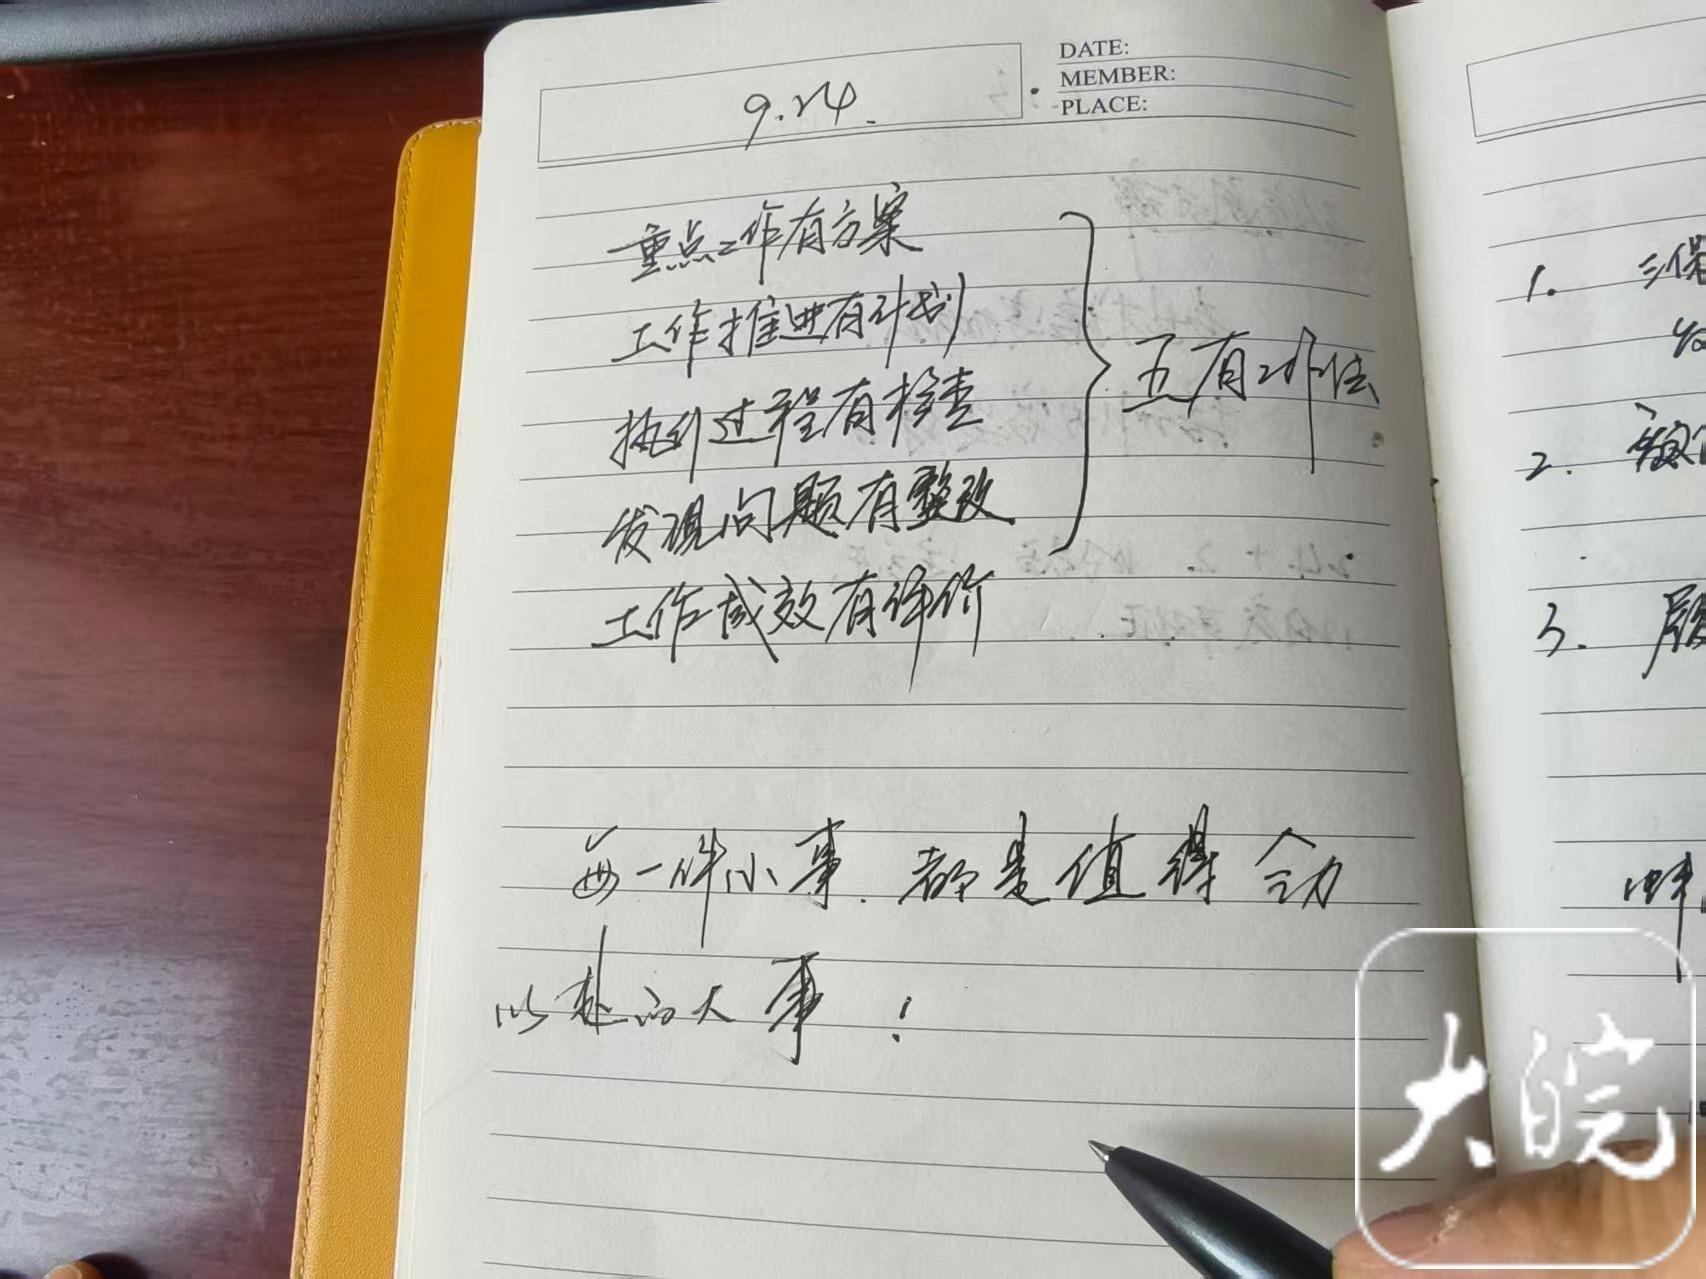 9.24.
DATE:
MEMBER:
PLACE:
重点工作有方案
工作推进有计划
执行过程有检查
发现问题有整改
工作成效有评价
五有工作法
每一件小事.都是值得全力
以赴的大事！
1. 三保
2.
3.
大皖